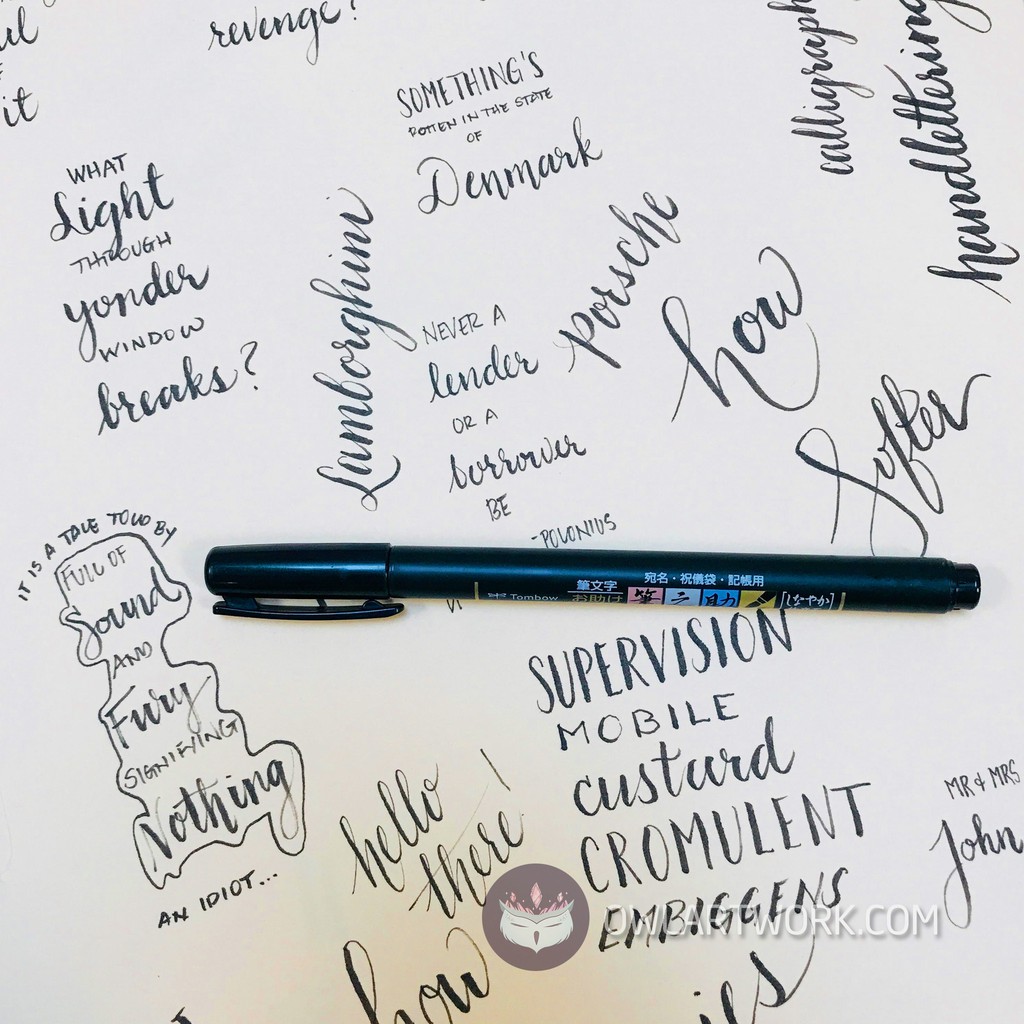 revenge?
it
calligraphy
handlettering
SOMETHING'S
ROTTEN IN THE STATE
OF
Denmark
WHAT
Light
THROUGH
yonder
WINDOW
breaks?
Lamborghini
Porsche
how
Softer
NEVER A
lender
OR A
borrower
BE
-POLONIUS
宛名・祝儀袋・記帳用
筆文字
Tombow お助け 筆之助 [しなやか]
IT IS A TALE TOLD BY
FULL OF
Sound
AND
Fury
SIGNIFYING
Nothing
AN IDIOT...
SUPERVISION
MOBILE
custard
CROMULENT
EMBIGGENS
hello
there!
MR & MRS
John
OWLARTWORK.COM
how